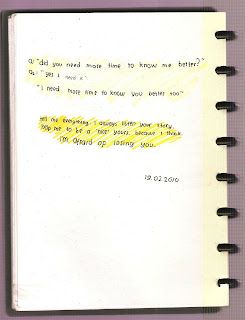 Q: "did you need more time to know me better?"
A: "yes i need it"
"i need more time to know you better too"
tell me everything, i always listen your story.
help me to be a 'nice' yours, because i think
i'm afraid of losing you.
19.02.2010